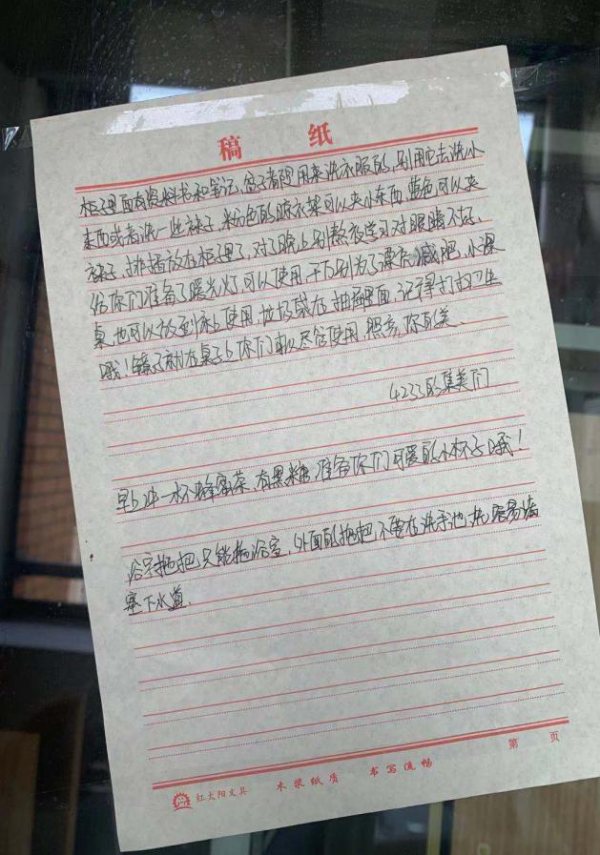 稿 纸
柜子里面有资料书和笔记,盆子都是用来洗衣服的,别用它去洗小
东西或者洗一些袜子,粉色的晾衣架可以夹小东西,蓝色可以夹
袜子,排插放在柜子里了,对了晚上别熬夜学习对眼睛不好,
给你们准备了暖光灯可以使用,千万别为了漂亮减肥,小课
桌也可以放到床上使用,垃圾袋在抽屉里面,记得打扫卫生
哦!镜子就在桌子上你们可以尽管使用,照亮你的美.
4233的集美们
早上冲一杯蜂蜜茶,有黑糖,准备你们可爱的小杯子哦!
浴室拖把只能拖浴室,外面的拖把不要在洗手池洗容易堵
塞下水道.
第 页
红太阳文具 木浆纸质 书写流畅